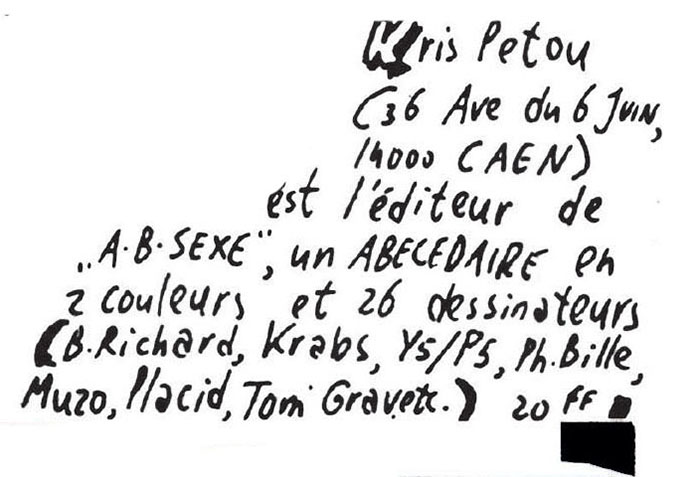 Kris Petou
(36 Ave du 6 JUIN,
14000 CAEN)
est l'éditeur de
„A·B·SEXE", un ABECEDAIRE en
2 couleurs et 26 dessinateurs
(B.Richard, Krabs, Y5/P5, Ph.Bille,
Muzo, Placid, Tom Gravetc.) 20 FF